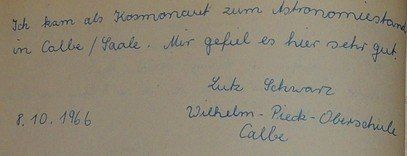 Ich kam als Kosmonaut zum Astronomiestand
in Calbe / Saale. Mir gefiel es hier sehr gut.
Lutz Schwarz
8.10.1966 Wilhelm-Pieck-Oberschule
Calbe